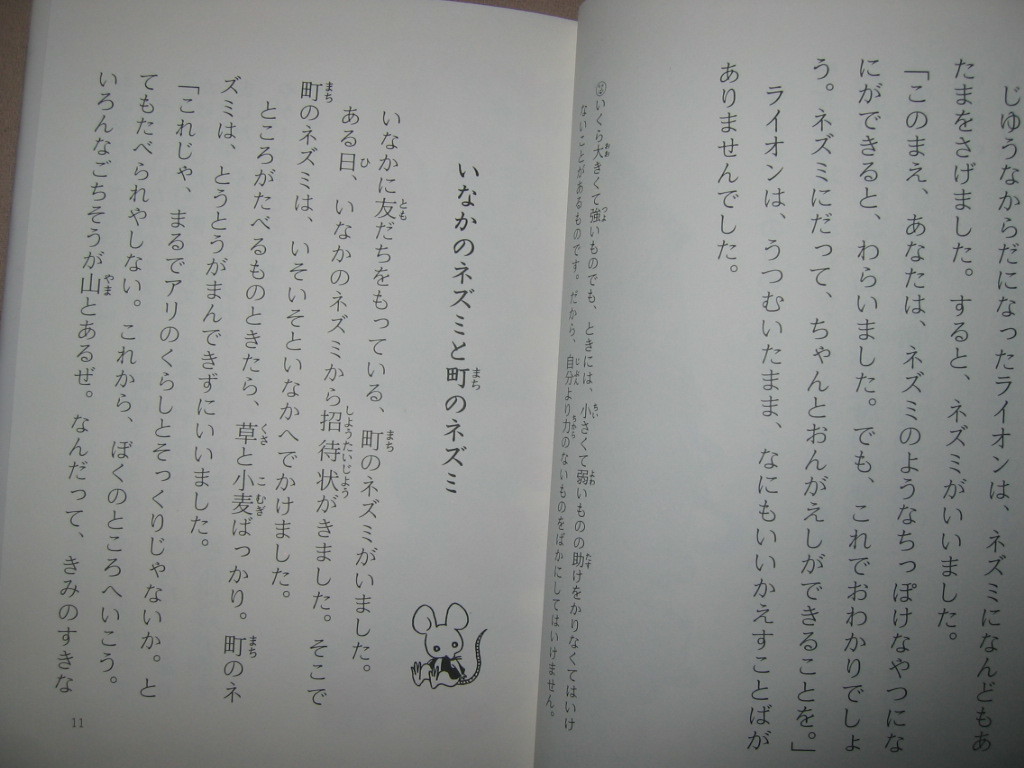 じゆうなからだになったライオンは、ネズミになんどもあ
たまをさげました。すると、ネズミがいいました。
「このまえ、あなたは、ネズミのようなちっぽけなやつにな
にができると、わらいました。でも、これでおわかりでしょ
う。ネズミにだって、ちゃんとおんがえしができることを。」
ライオンは、うつむいたまま、なにもいいかえすことばが
ありませんでした。
いくら大きくて強いものでも、ときには、小さくて弱いものの助けをかりなくてはいけ
ないことがあるものです。だから、自分より力のないものをばかにしてはいけません。
いなかのネズミと町のネズミ
いなかに友だちをもっている、町のネズミがいました。
ある日、いなかのネズミから招待状がきました。そこで
町のネズミは、いそいそといなかへでかけました。
ところがたべるものときたら、草と小麦ばっかり。町のネ
ズミは、とうとうがまんできずにいいました。
「これじゃ、まるでアリのくらしとそっくりじゃないか。と
てもたべられやしない。これから、ぼくのところへいこう。
いろんなごちそうが山とあるぜ。なんだって、きみのすきな
11